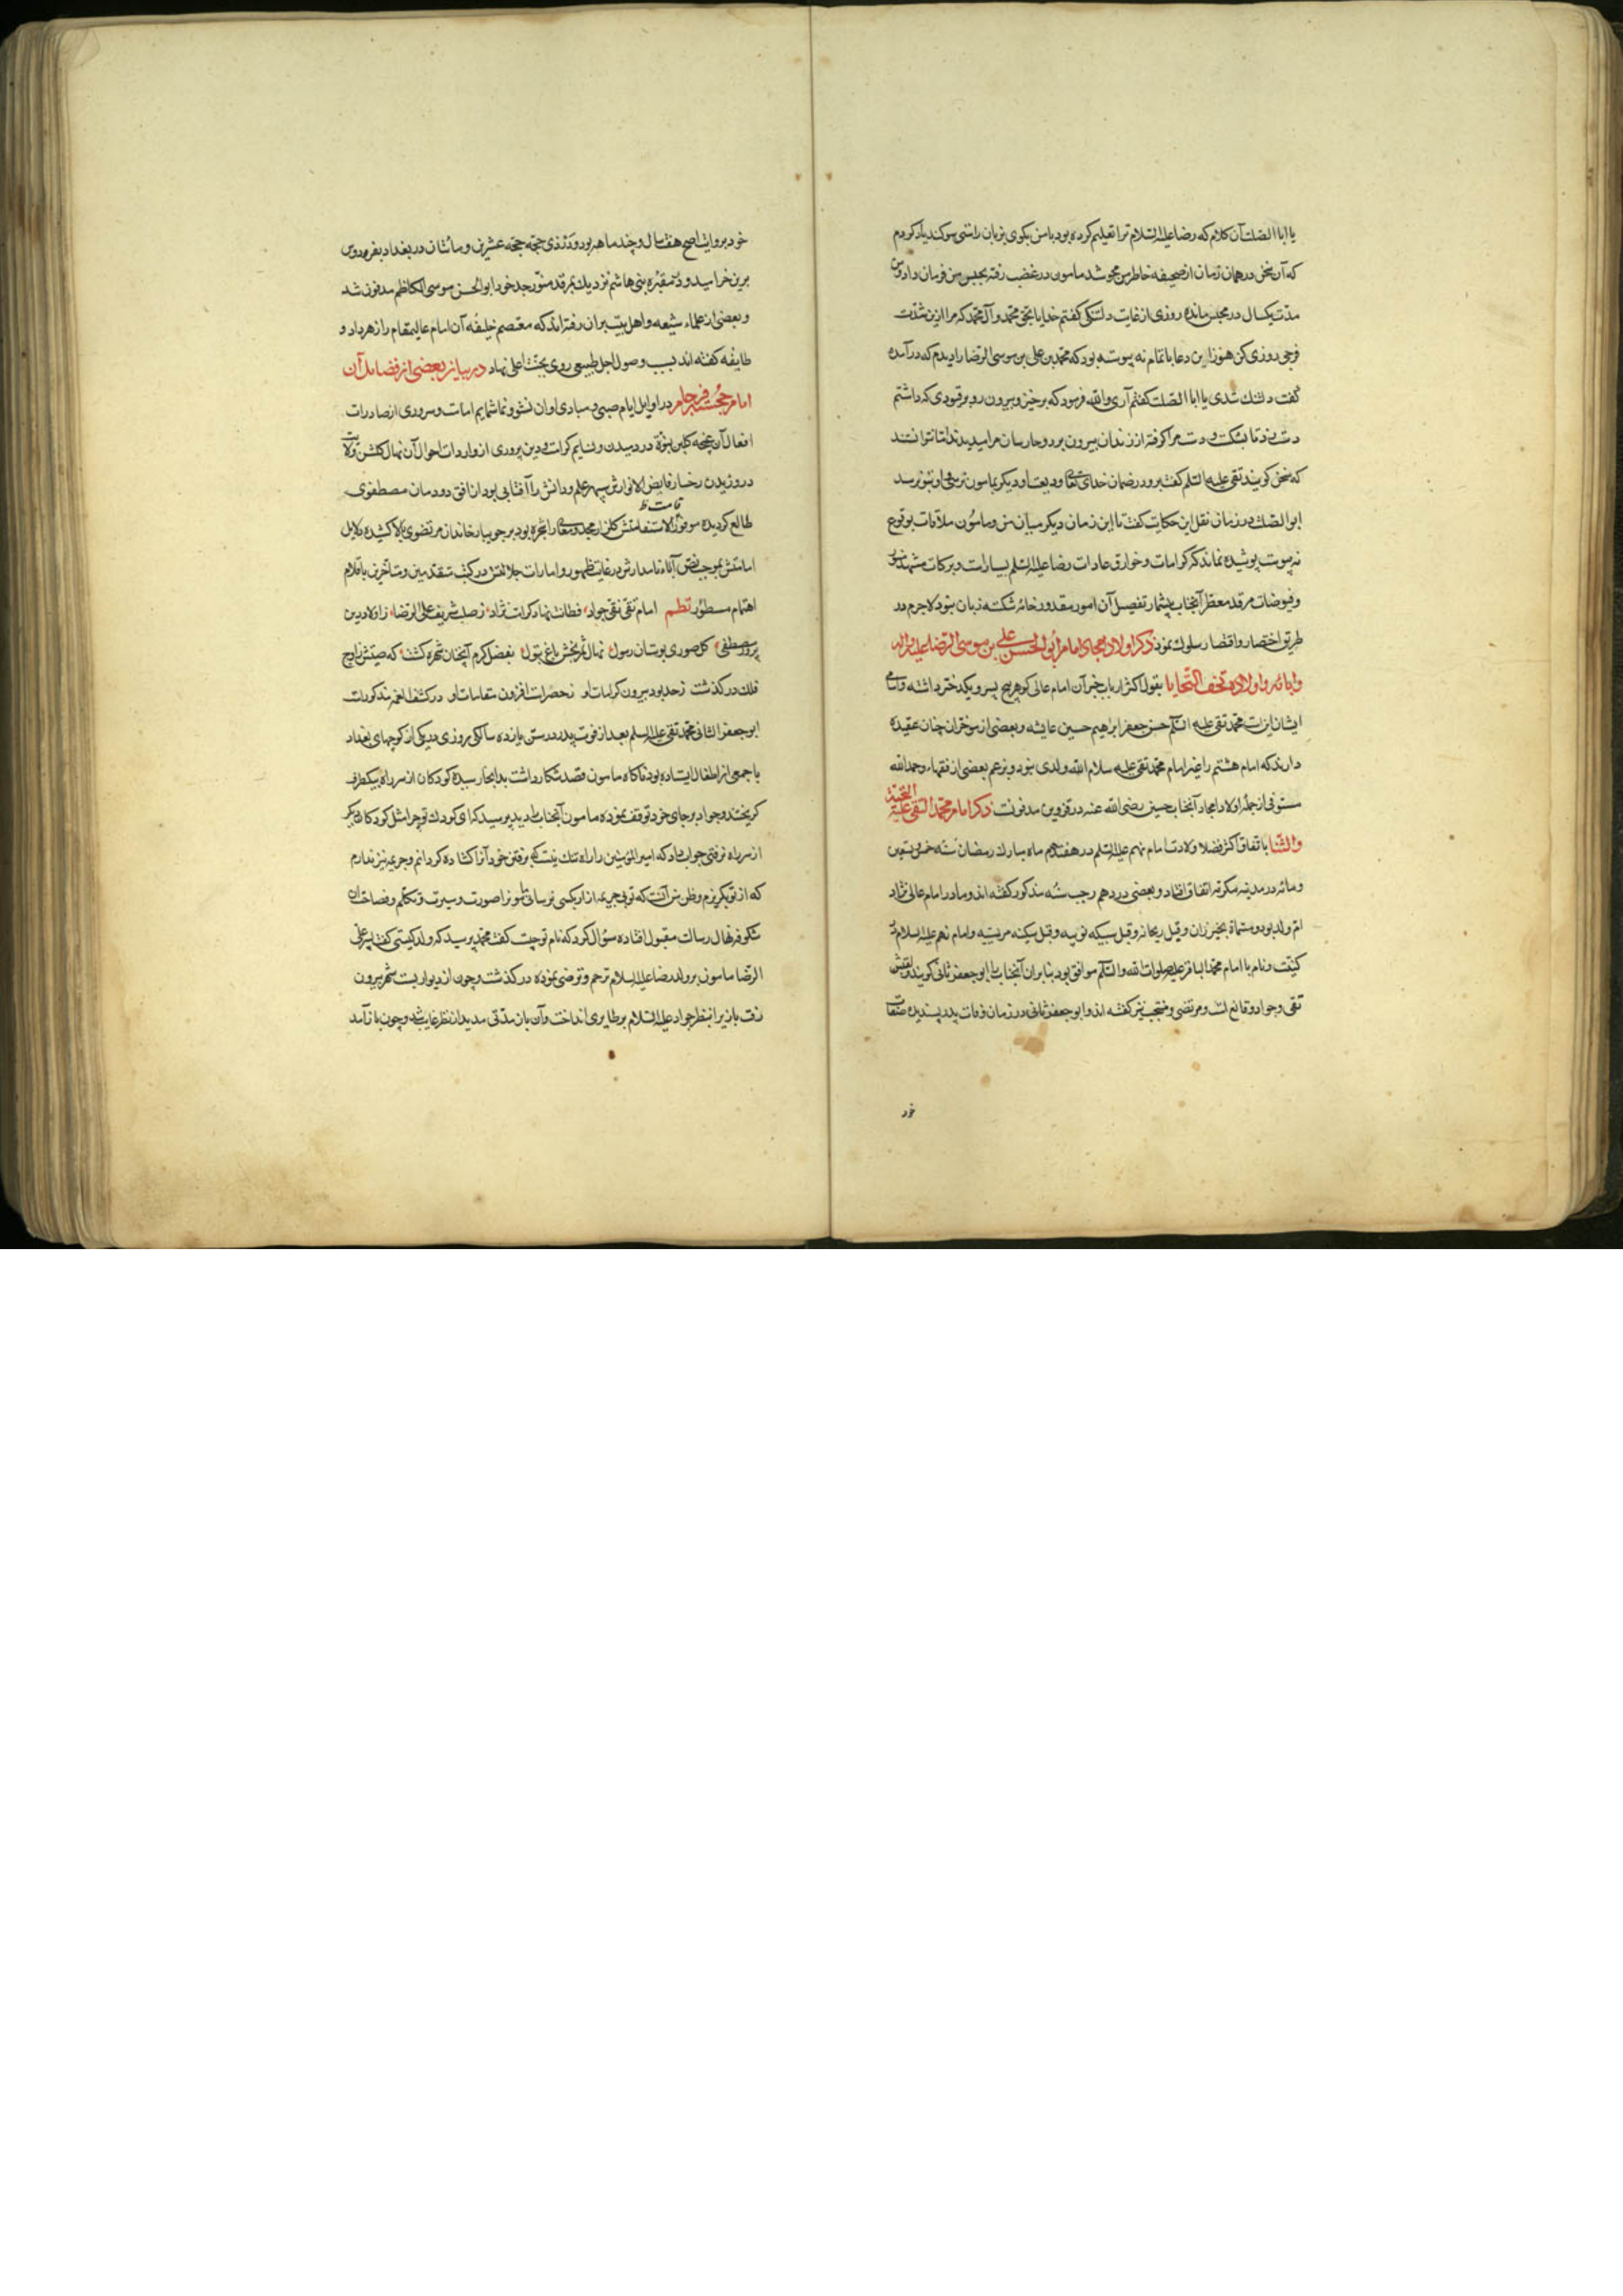 یا ابا الصلت آن کلام که رضا علیه السلام ترا تعلیم کرده بود با من بکوی بزبان راستی سوکند یاد کردم
که آن سخن در همان زمان از صحیفه خاطر من محو شد مامون در غضب رفته بحبس من فرمان داد و من
مدت یکسال در مجلس مانده روزی از غایت دلتنکی کفتم خدایا بحق محمد و آل محمد که مرا ازین شدت
فرجی روزی کن هنوز این دعا باتمام نه پیوسته بود که محمد بن علی بن موسی الرضا را دیدم که در آمده
کفت دلتنک شدی یا ابا الصلت کفتم آری والله فرمود که برخیز و بیرون رو بر قیودی که داشتم
دست زد تا بشکست و دست مرا کرفته از زندان بیرون برد و حارسان مرا میدیدند اما نتوانستند
که سخن کویند تقی علیه السلم کفت برو در ضمان خدای تعالی و دیکر بمامون نرسی و او بتو نرسد
ابو الصلت در زمان نقل این حکایت کفت تا این زمان دیکر میان من و مامون ملاقات بوقوع
نه پیوست پوشیده نماند که کرامات و خوارق عادات رضا علیه السلم بسیارست و برکات مشهد منور
و فیوضات مرقد معطر آنجناب بیشمار تفصیل آن امور مقدور خامه شکسته زبان نبود لاجرم در
طریق اختصار و اقتصار سلوک نمود ذکر اولاد امجاد امام ابی الحسن علی بن موسی الرضا علیه و اله
وابائه و اولاده تحف التحایا بقول اکثر ارباب خبر آن امام عالی کوهر پنج پسر و یکدختر داشته و اسامی
ایشان اینست محمد تقی علیه السلم حسن جعفر ابرهیم حسین عایشه و بعضی از مورخان چنان عقیده
دارند که امام هشتم را غیر امام محمد تقی علیه سلام الله ولدی نبود و بزعم بعضی از فقها و حمدالله
مستوفی از جمله اولاد امجاد آنجناب حسین رضی الله عنه در قزوین مدفونست ذکر امام محمد التقی علیه التحیة
والثنا باتفاق اکثر فضلا ولادت امام نهم علیه السلم در هفدهم ماه مبارک رمضان سنه خمس و تسعین
و مائه در مدینه مکرمه اتفاق افتاد و بعضی در دهم رجب سنه مذکور کفته اند و مادر امام عالی نژاد
ام ولد بود و مسماة بخیزران و قیل ریحانه و قیل سبیکه نوبیه و قیل سکینه مریسیه و امام نهم علیه السلام در
کنیت و نام با امام محمد الباقر علیه صلوات الله والسلم موافق بود بنابران آنجناب را ابو جعفر ثانی کویند و لقبش
تقی و جواد و قانع است و مرتضی و منتجب نیز کفته اند و ابو جعفر ثانی در زمان وفات پدر پسندیده صفات
خود
خود بروایت اصح هفت سال و چند ماهه بود و در ذی حجه حجه عشرین و مائتان در بغداد بفردوس
برین خرامید و در مقبره بنی هاشم نزدیک بمرقد منور جد خود ابو الحسن موسی الکاظم مدفون شد
و بعضی از علماء شیعه و اهل بیت بران رفته اند که معتصم خلیفه آن امام عالیمقام را زهر داد و
طایفه کفته اند بسبب وصول اجل طبیعی روی بجنت اعلی نهاد در بیان بعضی از فضایل آن
امام خجسته فرجام در اوایل ایام صبی و مبادی اوان نشو و نما شمایم امامت و سروری از صادرات
افعال آن غنچه کلبن نبوة در دمیدن و نسایم کرامت و دین پروری از واردات احوال آن نهال کلشن ولایت
در وزیدن رخسار فایض الانوارش سپهر علم و دانش را آفتابی بود از افق دودمان مصطفوی
قامت ظ
طالع کردیده موفور الاستقامتش کلزار مجد و معالی را شجره بود بر جویبار خاندان مرتضوی بالا کشیده دلایل
امامتش بموجب نص آباء نامدارش در غایت ظهور و امارات جلالتش در کتب متقدمین و متاخرین باقلام
اهتمام مسطور نظم امام تقی نقی جواد فطانت نهاد کرامت نژاد ز صلب شریف علی الرضا ز اولاد دین
پرور مصطفی کل صوری بوستان رسول نهال ثمربخش باغ بتول بفضل کرم آنچنان شهره کشت که صیتش ز اوج
فلک در کذشت ز حد بود بیرون کرامات او ز حصر است افزون مقامات او در کشف الغمه مذکورست
ابو جعفر الثانی محمد تقی علیه السلم بعد از فوت پدر در سن یازده سالکی روزی در یکی از کوچهای بغداد
با جمعی از اطفال ایستاده بود ناکاه مامون قصد شکار داشت بدانجا رسیده کودکان از سر راه بیکطرف
کریختند و جواد بر جای خود توقف نموده مامون آنجناب را دیده پرسید که ای کودک تو چرا مثل کودکان دیکر
از سر راه نرفتی جواب داد که امیر المؤمنین را راه تنک نیست که برفتن خود آنرا کشاده کردانم و جریمه نیز ندارم
که از تو بکریزم و ظن من آنست که تو بی جریمه ازار بکسی نرسانی مامونرا صورت و سیرت و تکلم و فصاحت ان
شکوفه نهال رسالت مقبول افتاده سؤال کرد که نام تو چیست کفت محمد پرسید که ولد کیستی کفت پسر علی
الرضا مامون بر ولد رضا علیه السلام ترحم و ترضی نموده در کذشت و چون از دیوار بست شهر بیرون
رفت باز یرا بنظر جواد علیه السلام بر طایری انداخت و آن باز مدتی مدید از نظر غایب شد و چون باز آمد